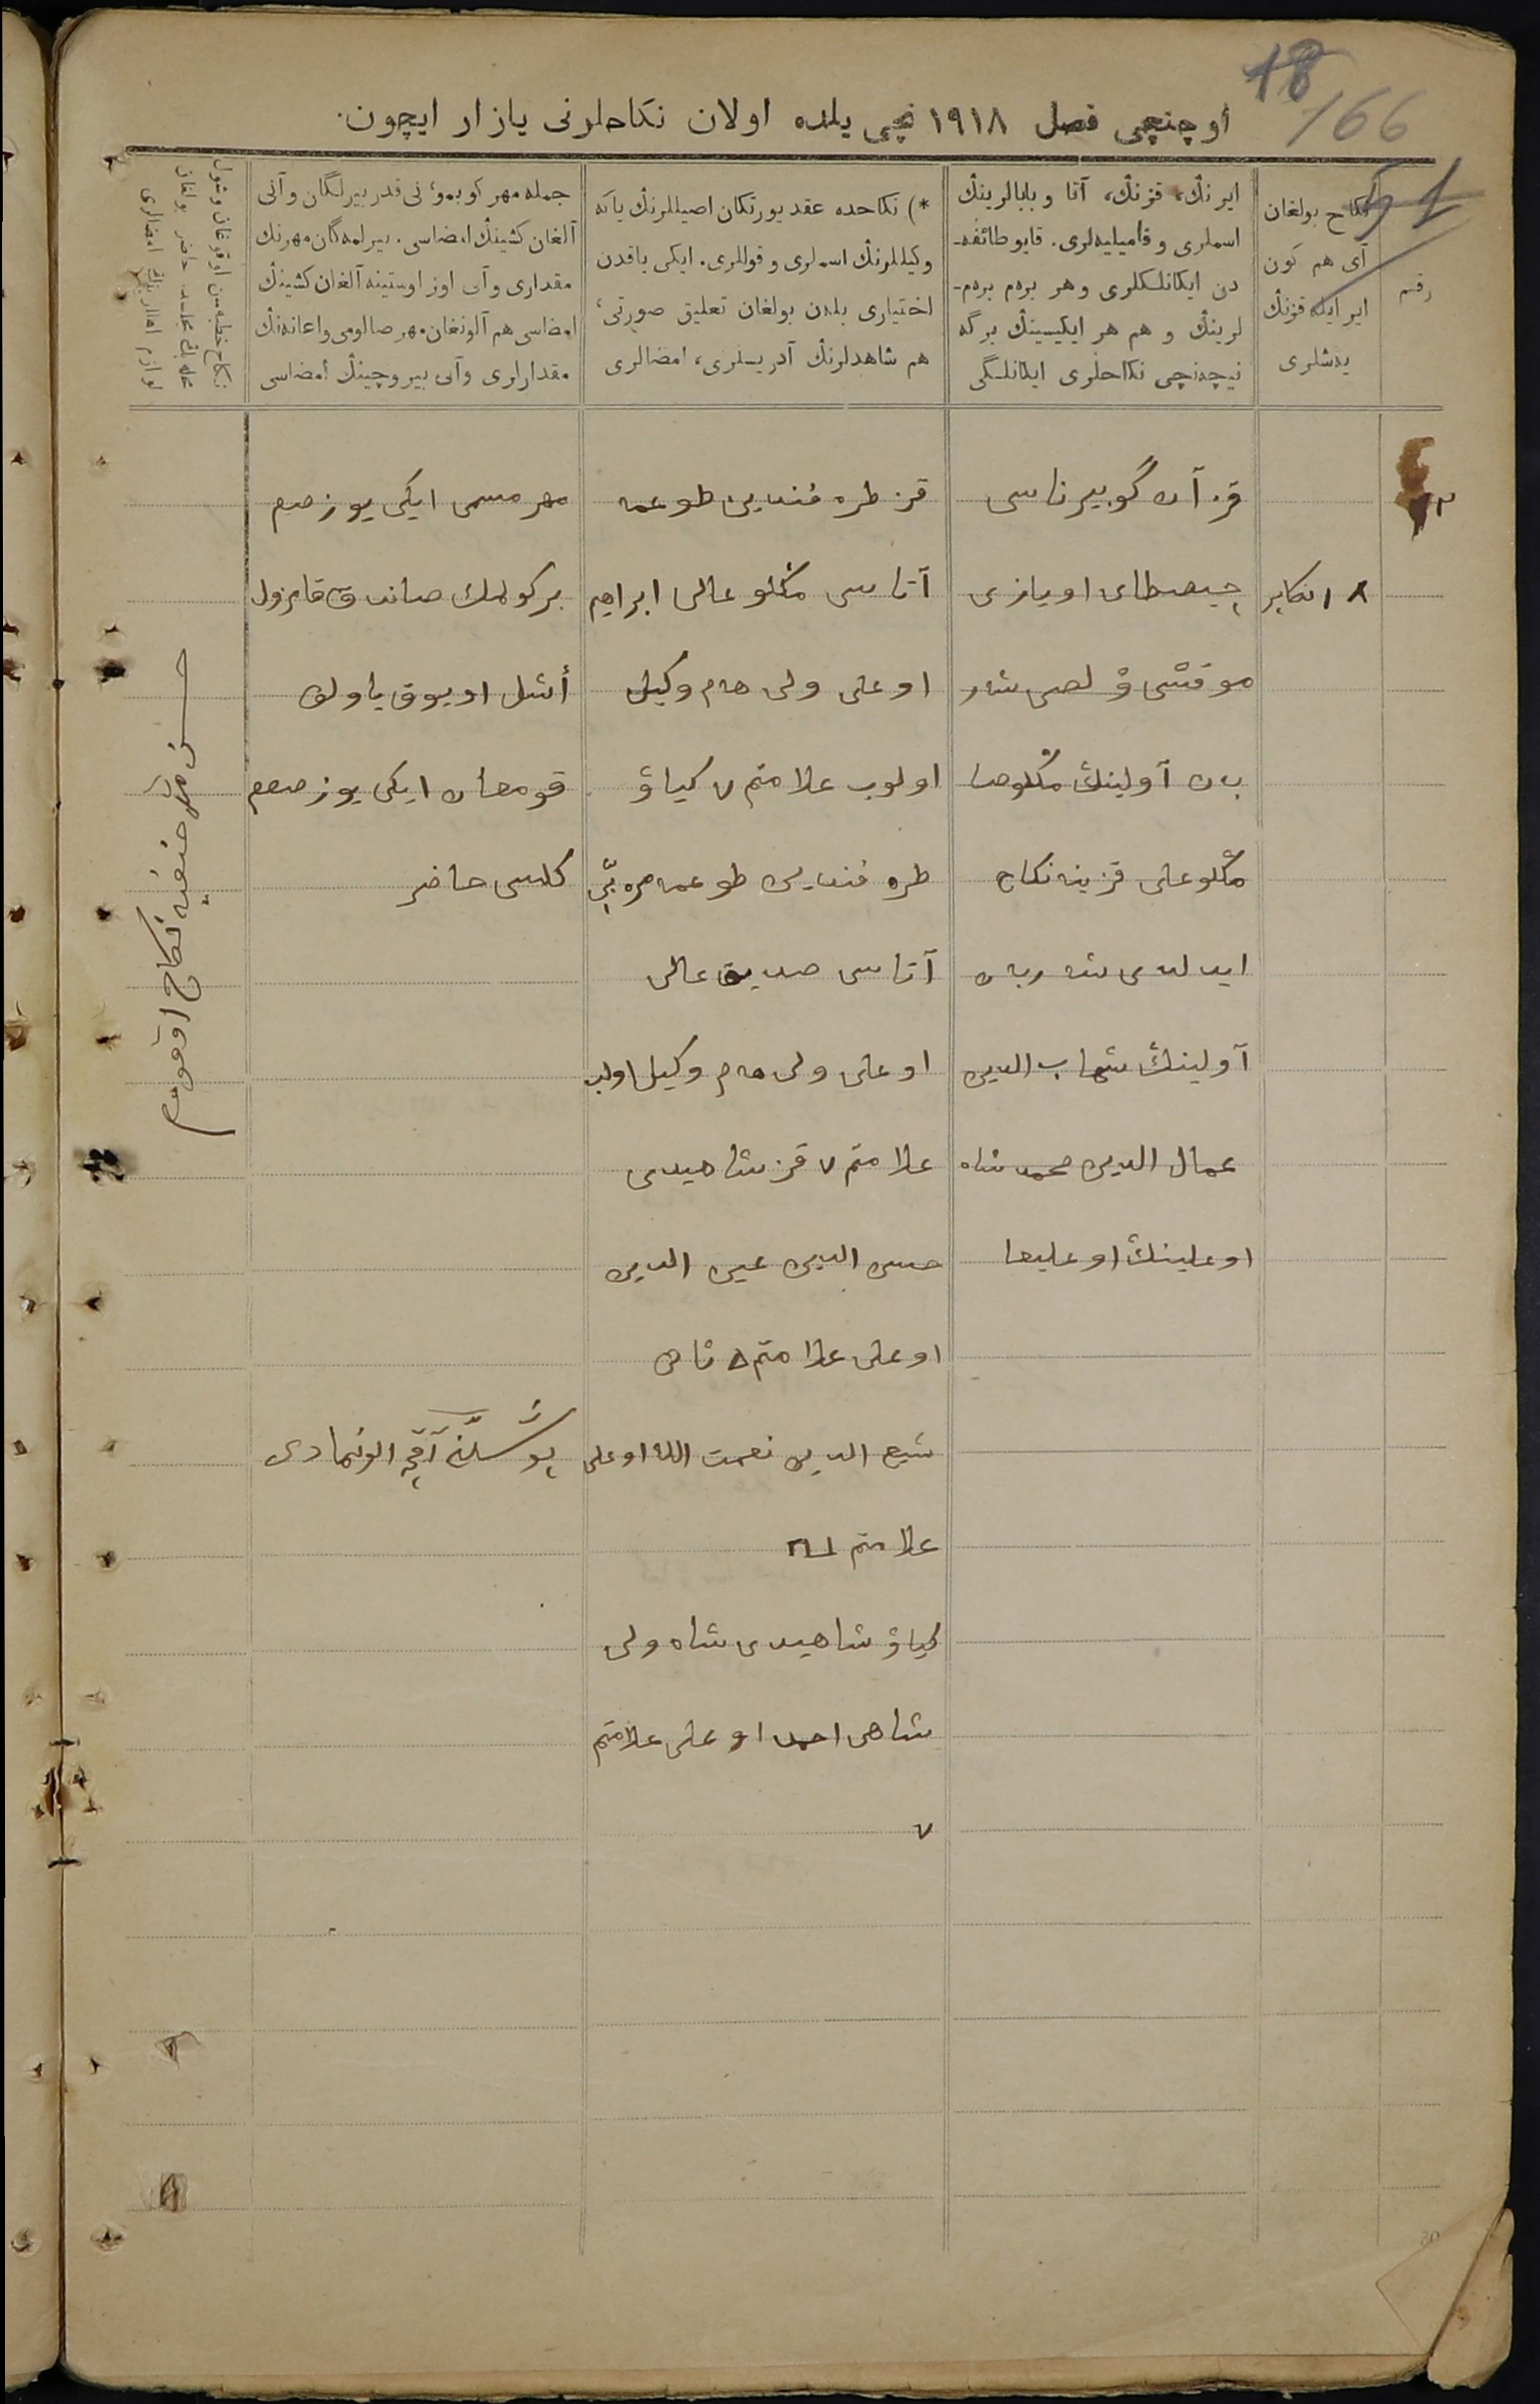 18
166
اوچنچی فصل ١٩١٨ نچی یلده اولان نکاحلرنی یازار ایچون.
رقم
نکاح بولغان
آی هم کون
ایر ایله قزنڭ
یەشلری
ایرنڭ، قزنڭ، آتا و بابالرینڭ
اسملری و فامیلیەلری. قایو طائفه‌ـ
دن ایکانلکلری و هر بره‌م بره‌م‌ـ
لرینڭ و هم هر ایکیسینڭ برگه
نیچه‌نچی نکاحلری ایکانلگی
*) نکاحده عقد یورتکان اصیللرنڭ یاکه
وکیللرنڭ اسملری و قوللری. ایکی یاقدن
اختیاری بله‌ن بولغان تعلیق صورتی،
هم شاهدلرنڭ آدریسلری، امضالری
جمله مهر کوبمو، نی قدر بیرلگان و آنی
آلغان کشینڭ امضاسی. بیرلمەگان مهرنڭ
مقداری و آنی اوز اوستینه آلغان کشینڭ
امضاسی هم آلونغان مهر صالومی و اعانه‌نڭ
مقدارلری و آنی بیروچینڭ امضاسی
نکاح خطبه‌سن اوقوغان و شول
مجلسده حاضر بولغان
لوازم امضالری
٢
١٨ نکابر
قزآن گوبیرناسی
چیصطای اویازی
موقشی ولصی شدر
بان آولینڭ مڭلوصا
مڭلوعلی قزینه نکاح
ایدلدی شدربان
آولینڭ شهاب الدین
عمال الدین محمدشاه
اوغلینڭ اوغلیغا
قز طره‌فندین طوغمه
آتاسی مڭلوعالی ابراهیم
اوغلی ولی هم وکیل
اولوب علامتم ٧ کیاو
طره‌فندین طوغمه مربی
آتاسی صدیق عالی
اوغلی ولی هم وکیل اولب
علامتم ٧ قز شاهیدی
حسن الدین عین الدین
اوغلی علامتم ٥ ثانی
شیخ الدین نعمت الله اوغلی
علامتم
کیاو شاهیدی شاه ولی
شاهی احمد اوغلی علامتم
٧
مهر مسمی ایکی یوز صم
بر کولمك صاندق قامزول
أشل اویوق یاولق
قومغان ایکی یوز صم
کلسی حاضر
پوشلنه آقچه الونمادی
نکاح اوقودم